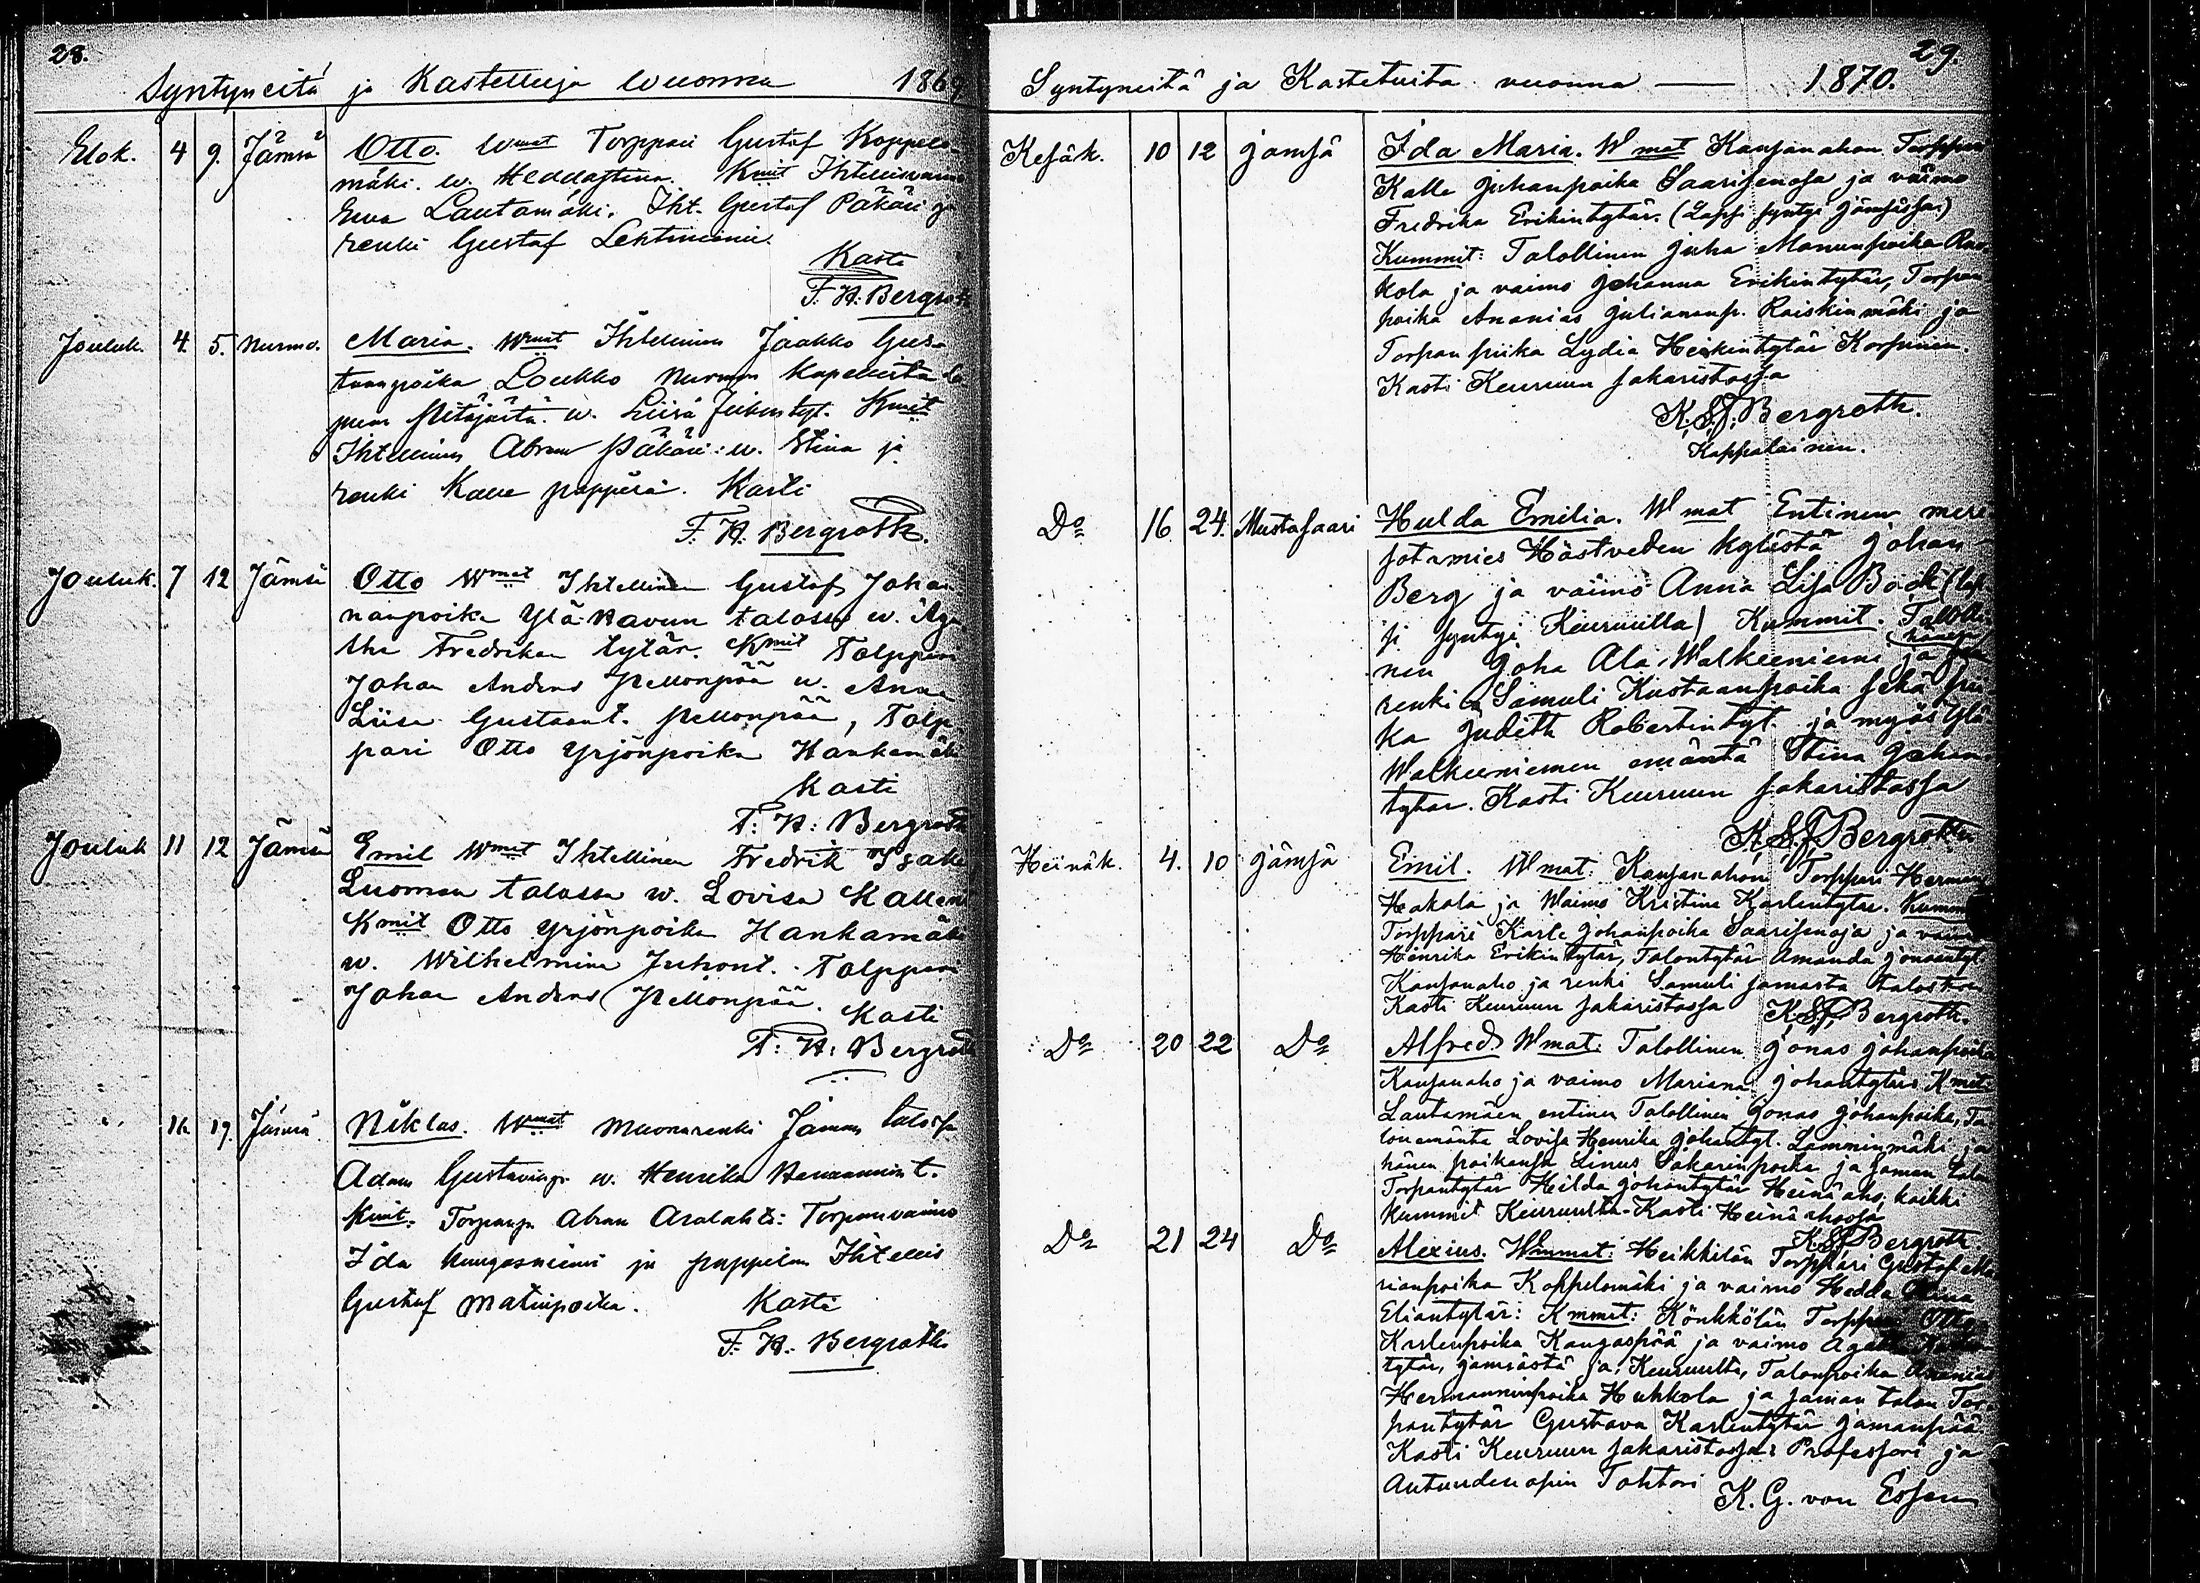 28.
Syntyneitä ja Kastettuja Wuonna 1869
Elok. 4 9. Jämsä Otto. Wmat Torppari Gustaf Koppelo-
mäki. w. Heddastina. Kmit Ihtellisvaimo
Ewa Lautamäki. Iht. Gustaf Päkäri ja
renki Gustaf Lehtiniemi.
Kasti
F. H. Bergroth
Jouluk. 4. 5. Nurmo. Maria. Wmat Ihtellinen Jaakko Gus-
taanpoika Loukko Nurmon Kapellista La
puan Pitäjästä. w. Liisa Juhontyt. Kmit
Ihtellinen Abram Päkäri: w. Stina ja
renki Kalle pappila. Kasti
F. H. Bergroth.
Jouluk. 7 12 Jämsä Otto Wmat Ihtellinen Gustaf Johan
nanpoika Ylä-Kavun talossa w. Aga
tha Fredrikan tytär. Kmit Torppari
Johan Anders Pellonpää w. Anna
Liisa Gustaant. Pellonpää, Torp-
pari Otto Yrjönpoika Hankamäki
Kasti
F: H: Bergroth
Jouluk 11 12 Jämsä Emil Wmat Ihtellinen Fredrik Isak
Luoman talossa w. Lovisa Kallent
Kmit Otto Yrjönpoika Hankamäki
w. Wilhelmina Juhont. Torppari
Johan Anders Pellonpää.
Kasti
F: H: Bergroth
16 19. Jämsä Niklas. Wmat Muonarenki Jämsän talossa
Adam Gustavinp. w. Henrika Hermannint.
Kmit. Torpanp. Abram Aralahti: Torpanvaimo
Ida Kungasniemi ja pappilan Ihtellis
Gustaf Matinpoika. Kasti
F. H. Bergroth
29.
Syntyneitä ja Kastetuita vuonna — 1870.
Kesäk. 10 12 Jämsä Ida Maria. Wmat Kanganahon Torppari
Kalle Juhanpoika Saarisenoja ja vaimo
Fredrika Erikintytär. (Lapsi syntyi Jämsässä)
Kummit: Talollinen Juha Manunpoika Ruo-
kola ja vaimo Johanna Erikintytär, Torpan
poika Ananias Juliananp. Raiskinmäki ja
Torpan piika Lydia Heikintytär Korpinen.
Kasti Keuruun Sakaristossa
K. S. J. Bergroth.
Kappalainen.
Do 16. 24. Mustasaari Hulda Emilia. Wmat Entinen meri
sotamies Hästveden kylästä Johan
Berg ja vaimo Anna Lisa Bock (lap-
si syntyi Keuruulla) Kummit. Talolli-
nen Joha Ala-Walkeeniemi ja hänen
renki Samuli Kustaanpoika sekä pii-
ka Judith Robertintyt. ja myös Ylä
Walkeeniemen emäntä Stina Johan-
tytar. Kasti Keuruun Sakaristossa
K. S. J. Bergroth
Heinäk. 4. 10 Jämsä Emil. Wmat: Kanganahon Torppari Herman
Hakala ja Waimo Kristina Karlentytär. Kummit
Torppari Karle Johanpoika Saarisenoja ja vaimo
Henrika Erikintytär, Talontytär Amanda Jonaantyt
Kanganaho ja renki Samuli samasta talosta
Kasti Keuruun Sakaristossa K. S. J. Bergroth.
Do 20 22 Do Alfred Wmat: Talollinen Jonas Johanpoika
Kanganaho ja vaimo Mariana Johantytär. Kmit.
Lautamäen entinen Talollinen Jonas Johanpoika, Ta
lonemäntä Lovisa Henrika Johantyt. Lamminmäki ja
hänen poikansa Linus Sakarinpoika ja saman talon
Torpantytär Hilda Johantytär Heinäaho, kaikki
Kummit Keuruulta. Kasti Heinä ahossa
K. S. J. Bergroth
Do 21 24 Do Alexius. Wmmat: Heikkilän Torppari Gustaf Ma
rianpoika Koppelomäki ja vaimo Hedda Stina
Eliantytär: Kmmit: Könkkölän Torppari Otto
Karlenpoika Kangaspää ja vaimo Agatha
tytär, Jämsästä ja Keuruulta, Talonpoika Ananias
Hermanninpoika Huhkola ja saman talon Tor-
pantytär Gustava Karlentytär Jamanpää.
Kasti Keuruun Sakaristossa: Professori ja
Autuudenopin Tohtori K. G. von Essen